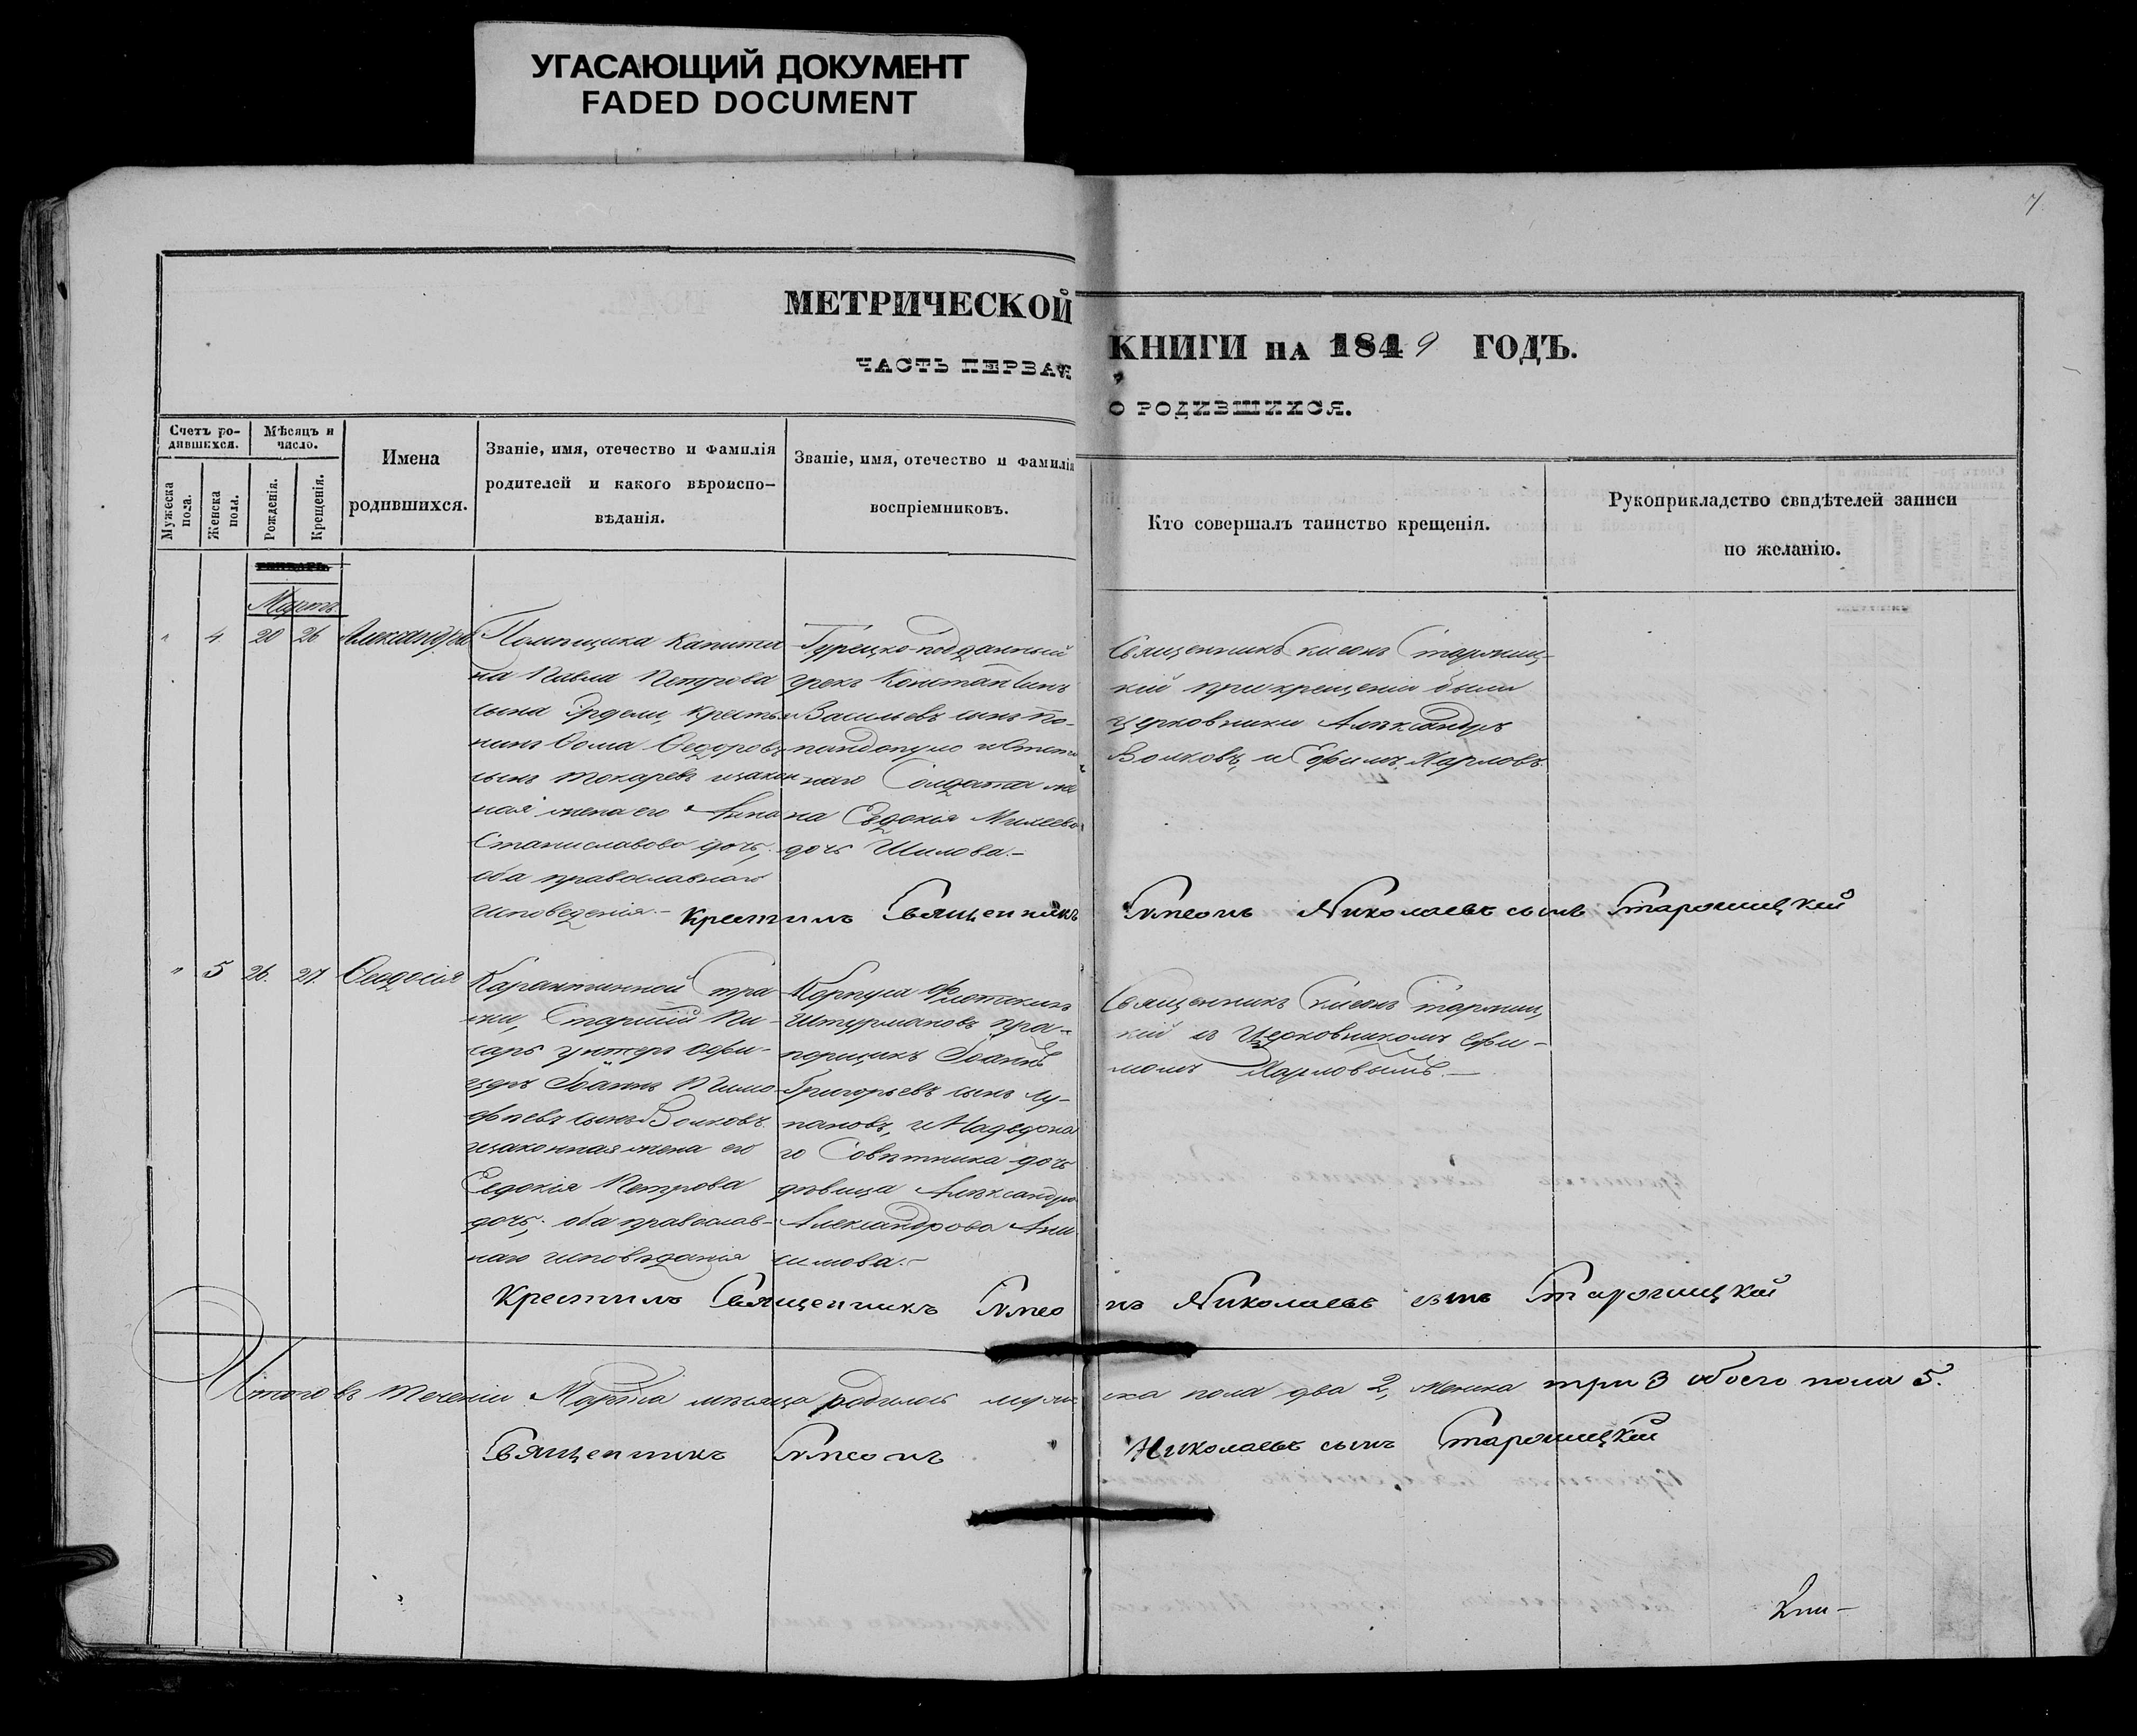 УГАСАЮЩИЙ ДОКУМЕНТ
FADED DOCUMENT
7
МЕТРИЧЕСКОЙ КНИГИ на 1849 ГОДЪ.
ЧАСТЬ ПЕРВАЯ О РОДИВШИХСЯ.
Счетъ ро-
дившихся.
Мужеска пола.
Женска пола.
Мѣсяцъ и
число.
Рожденія.
Крещенія.
Имена
родившихся.
Званіе, имя, отечество и фамилія
родителей и какого вѣроиспо-
вѣданія.
Званіе, имя, отечество и фамилія
воспріемниковъ.
Кто совершалъ таинство крещенія.
Рукоприкладство свидѣтелей записи
по желанію.
Мартъ
" 4 20 26 Александра
Помѣщика Капита
на Павла Петрова
сына Эрдели, крестья
нинъ Ѳома Ѳедоровъ
сынъ Токаревъ и закон
ная жена его Анна
Станиславова дочь,
оба православнаго
исповеденія.-
Турецко-подданный
грекъ Константинъ
Васильевъ сынъ По-
пандопуло и
наго Солдата же
на Евдокія Михеева
дочь Шилова.-
Священникъ Симеонъ Старжиц-
кій при крещеніи были
церковники Александръ
Волковъ, и Ефимъ Карповъ.
Крестилъ Священникъ Симеонъ Николаевъ сынъ Старжицкій
" 5 26. 27. Ѳеодосія
Карантинной Стра
жи, Старшій Пи-
сарь унтеръ офи-
церъ Іоаннъ Тимо-
фѣевъ сынъ Волковъ
и законная жена его
Евдокія Петрова
дочь, оба православ-
наго исповѣданія
Корпуса флотскихъ
Штурмановъ пра-
порщикъ Іоаннъ
Григорьевъ сынъ Лу-
пановъ, и Надворна
го Совѣтника дочь
дѣвица Александра
Александрова Ани
симова.-
Священникъ Симеонъ Старжиц
кій съ Церковникомъ Ефи-
момъ Карповымъ.-
Крестилъ Священникъ Симео нъ Николаевъ сынъ Старжицкій
Итого въ теченіи Марта мѣсяца родилось муже ска пола два 2, женска три 3 обоего пола 5.
Священникъ Симеонъ Николаевъ сынъ Старжицкій
Кни-